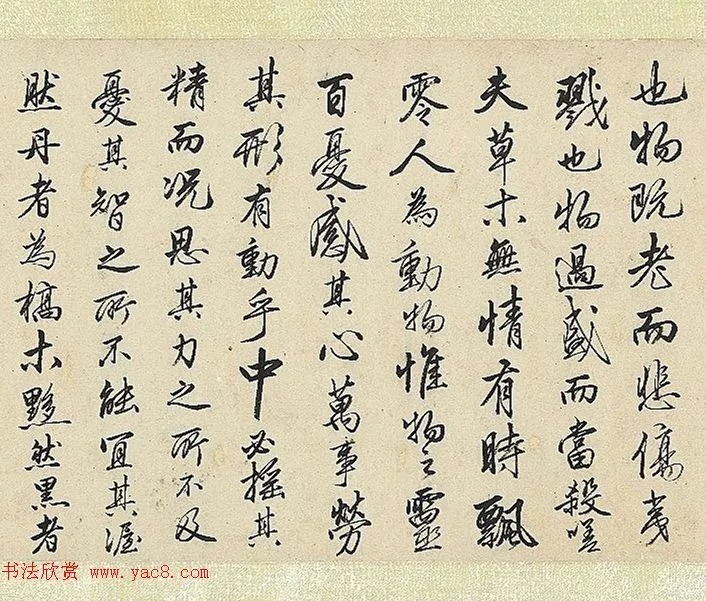 也物既老而悲傷夷
戮也物過盛而當殺嗟
夫草木無情有時飄
零人為動物惟物之靈
百憂感其心萬事勞
其形有動乎中必搖其
精而況思其力之所不及
憂其智之所不能宜其渥
然丹者為槁木黟然黑者
书法欣赏 www.yac8.com